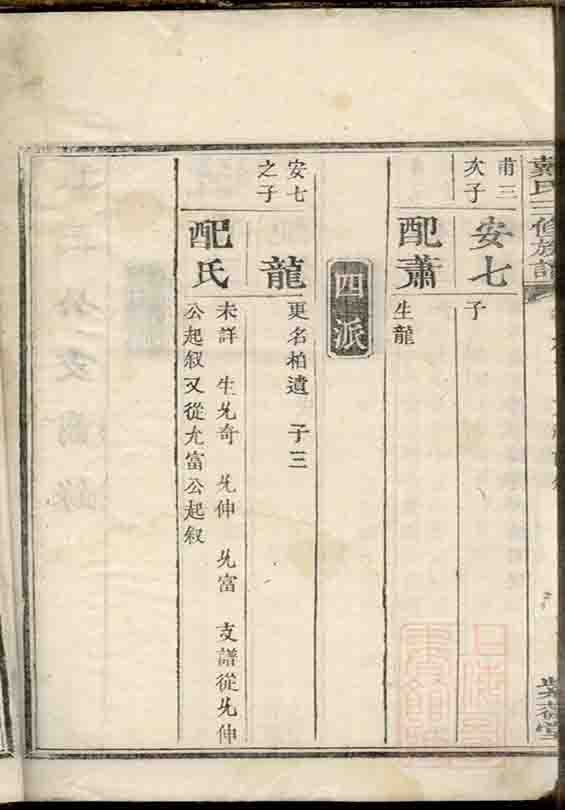 戴氏三修族譜
紫薇堂
甫三
次子
安七
子
配蕭
生龍
四派
安七
之子
龍
更名柏遺 子三
配氏
未詳 生允奇 允仲 允富 支譜從允仲
公起叙又從允富公起叙